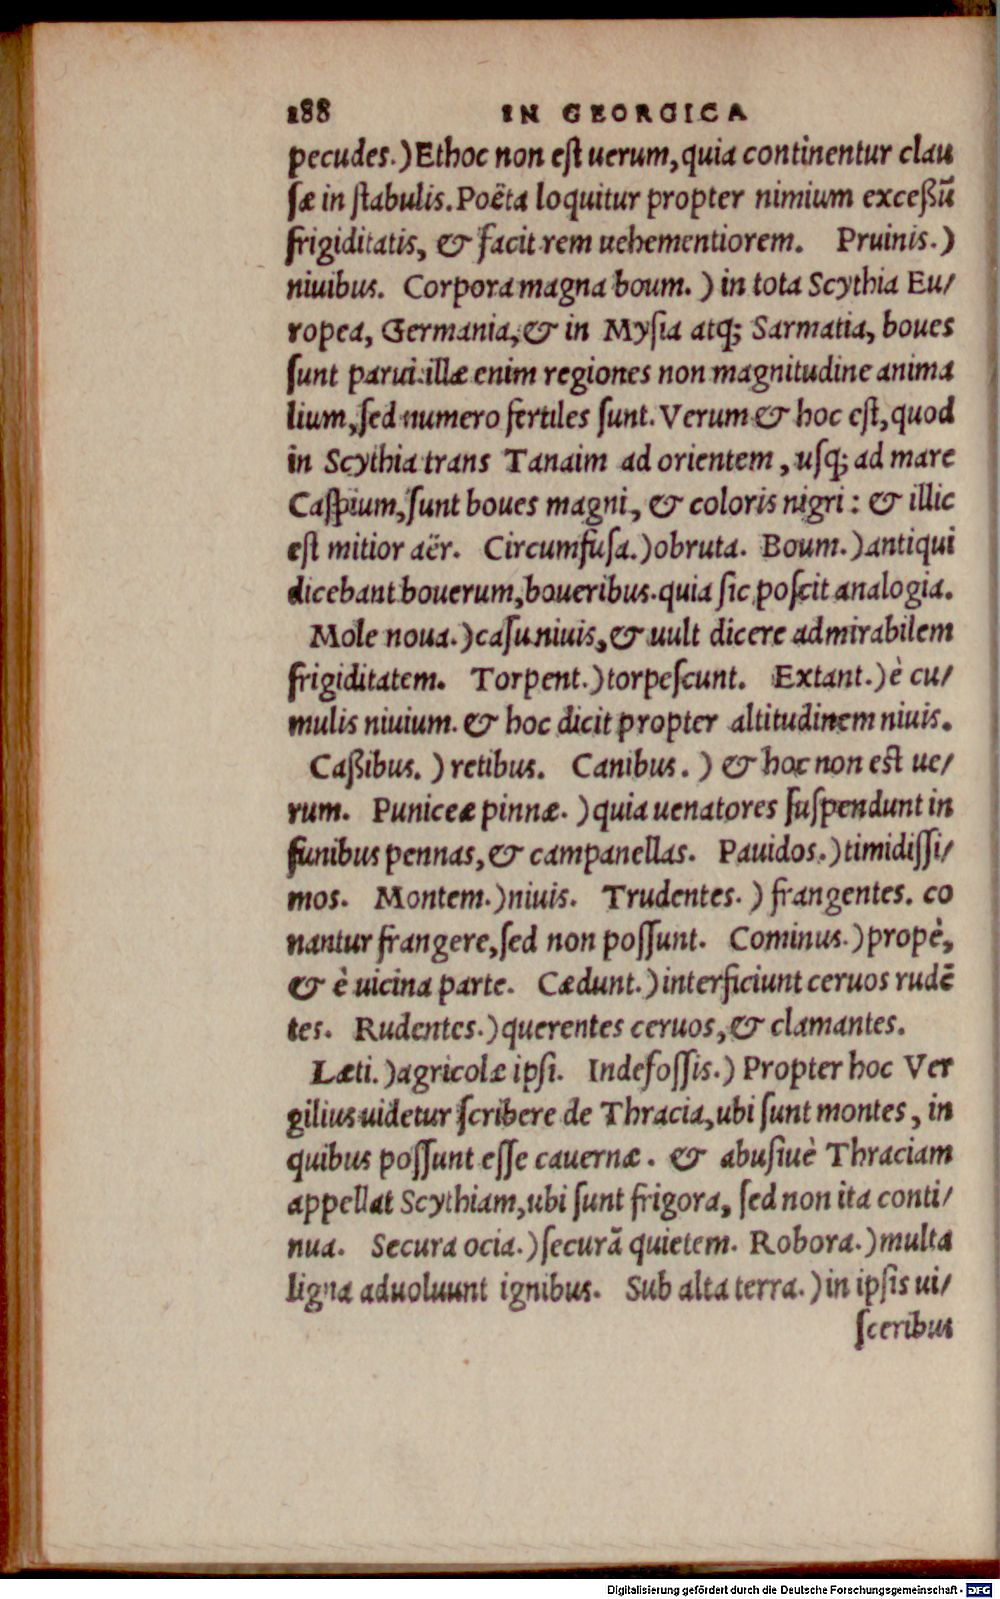 188 IN GEORGICA
pecudes.) Et hoc non eſt uerum, quia continentur clau
ſæ in ſtabulis. Poëta loquitur propter nimium exceßũ
frigiditatis, & facit rem uehementiorem. Pruinis.)
niuibus. Corpora magna boum.) in tota Scythia Eu/
ropea, Germania, & in Myſia atq; Sarmatia, boues
ſunt parui: illæ enim regiones non magnitudine anima
lium, ſed numero fertiles ſunt. Verum & hoc eſt, quod
in Scythia trans Tanaim ad orientem, uſq; ad mare
Caſpium, ſunt boues magni, & coloris nigri: & illic
eſt mitior aër. Circumfuſa.) obruta. Boum.) antiqui
dicebant bouerum, boueribus. quia ſic poſcit analogia.
Mole noua.) caſu niuis, & uult dicere admirabilem
frigiditatem. Torpent.) torpeſcunt. Extant.) è cu/
mulis niuium. & hoc dicit propter altitudinem niuis.
Caßibus.) retibus. Canibus.) & hoc non est ue/
rum. Puniceæ pinnæ.) quia uenatores ſuſpendunt in
funibus pennas, & campanellas. Pauidos.) timidiſſi/
mos. Montem.) niuis. Trudentes.) frangentes. co
nantur frangere, ſed non poſſunt. Cominus.) propè,
& è uicina parte. Cædunt.) interficiunt ceruos rudẽ
tes. Rudentes.) querentes ceruos, & clamantes.
Læti.) agricolæ ipſi. Indefoſſis.) Propter hoc Ver
gilius uidetur ſcribere de Thracia, ubi ſunt montes, in
quibus poſſunt eſſe cauernæ. & abuſiuè Thraciam
appellat Scythiam, ubi ſunt frigora, ſed non ita conti/
nua. Secura ocia.) ſecurã quietem. Robora.) multa
ligna aduoluunt ignibus. Sub alta terra.) in ipſis ui/
ſceribus
Digitalisierung gefördert durch die Deutsche Forschungsgemeinschaft - DFG